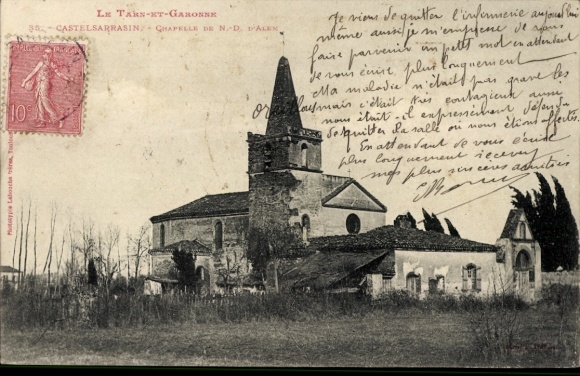 LE TARN-ET-GARONNE
35. - CASTELSARRASIN. - CHAPELLE DE N.-D. D'ALEM
10
Phototypie Labouche frères, Toulouse
Je viens de quitter l'infirmerie aujourd'hui
même aussi je m'empresse de vous
faire parvenir un petit mot en attendant
de vous écrire plus longuement.
Ma maladie n'était pas grave les
oreillons mais c'était très contagieux aussi
nous était-il expressément défendu
de quitter la salle où nous étions affectés.
En attendant de vous écrire
plus longuement recevez
mes plus sincères amitiés